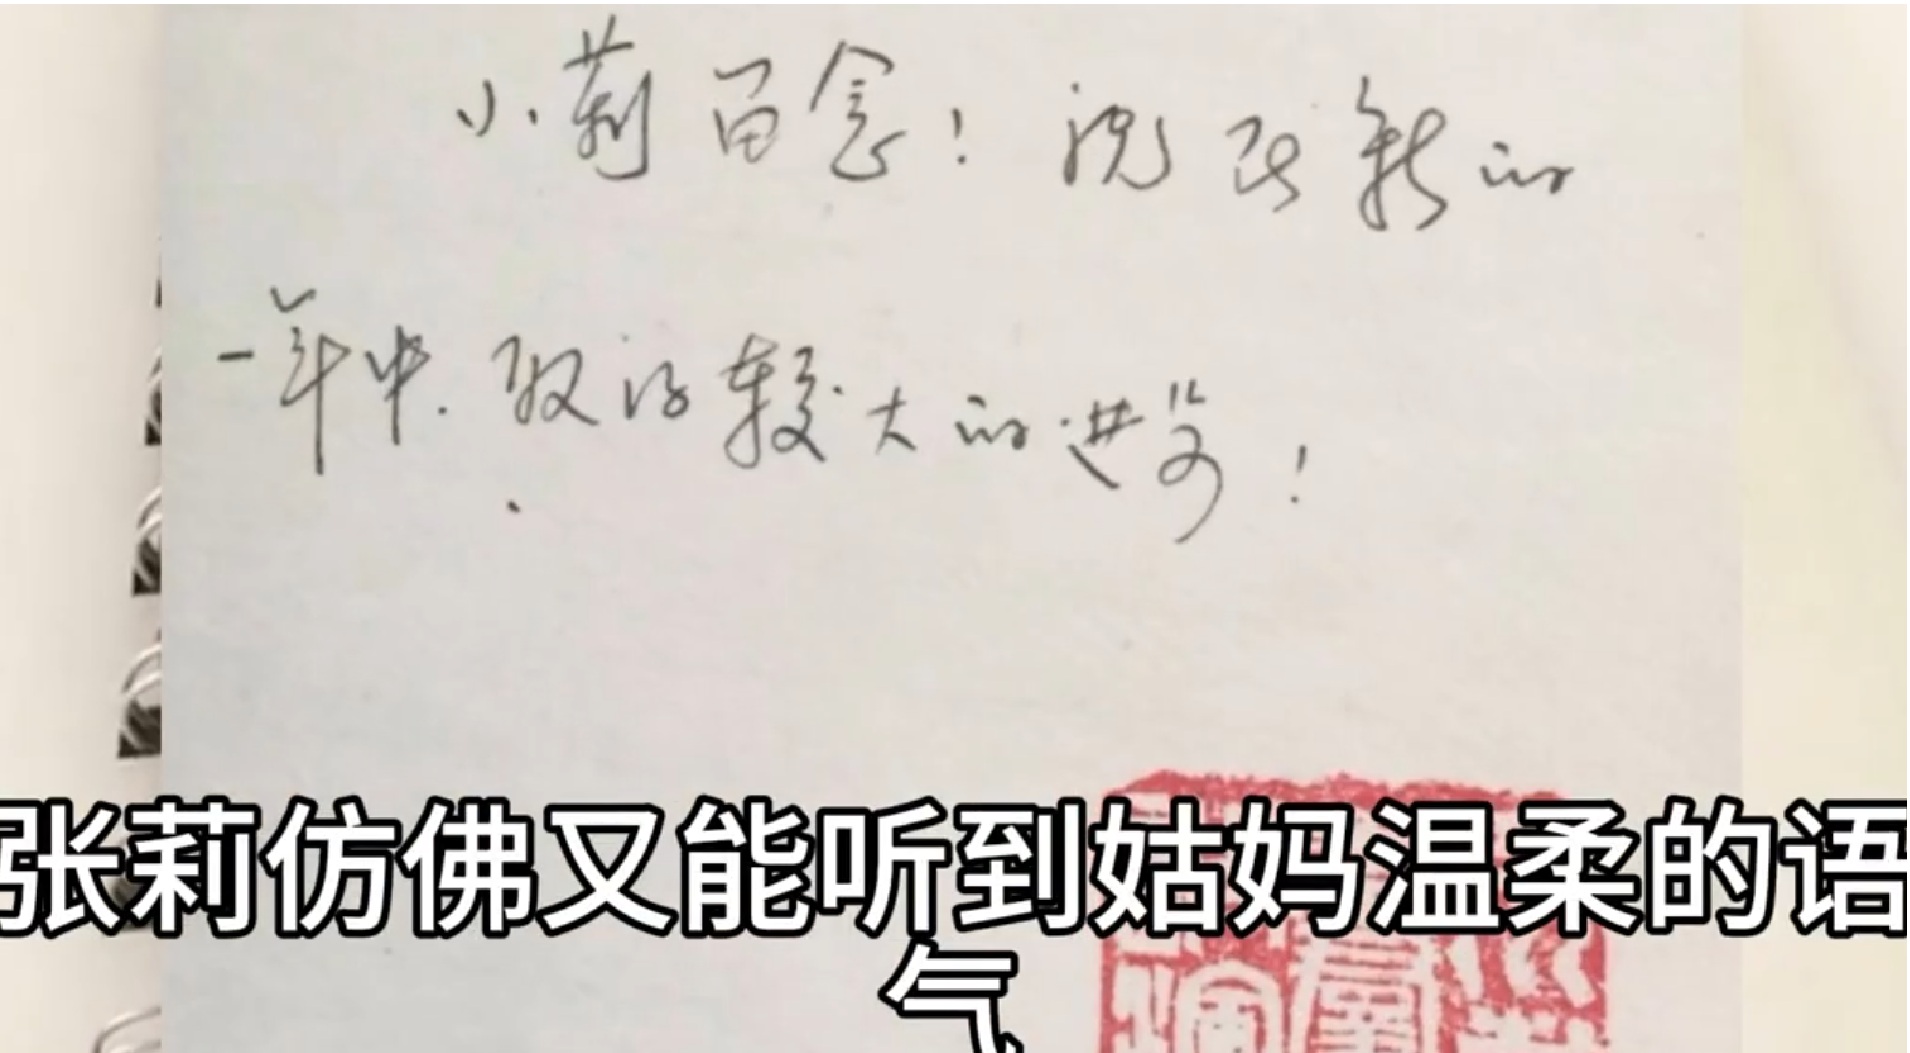 小莉留念！祝在新的
一年中.取得较大的进步！
张莉仿佛又能听到姑妈温柔的语
气